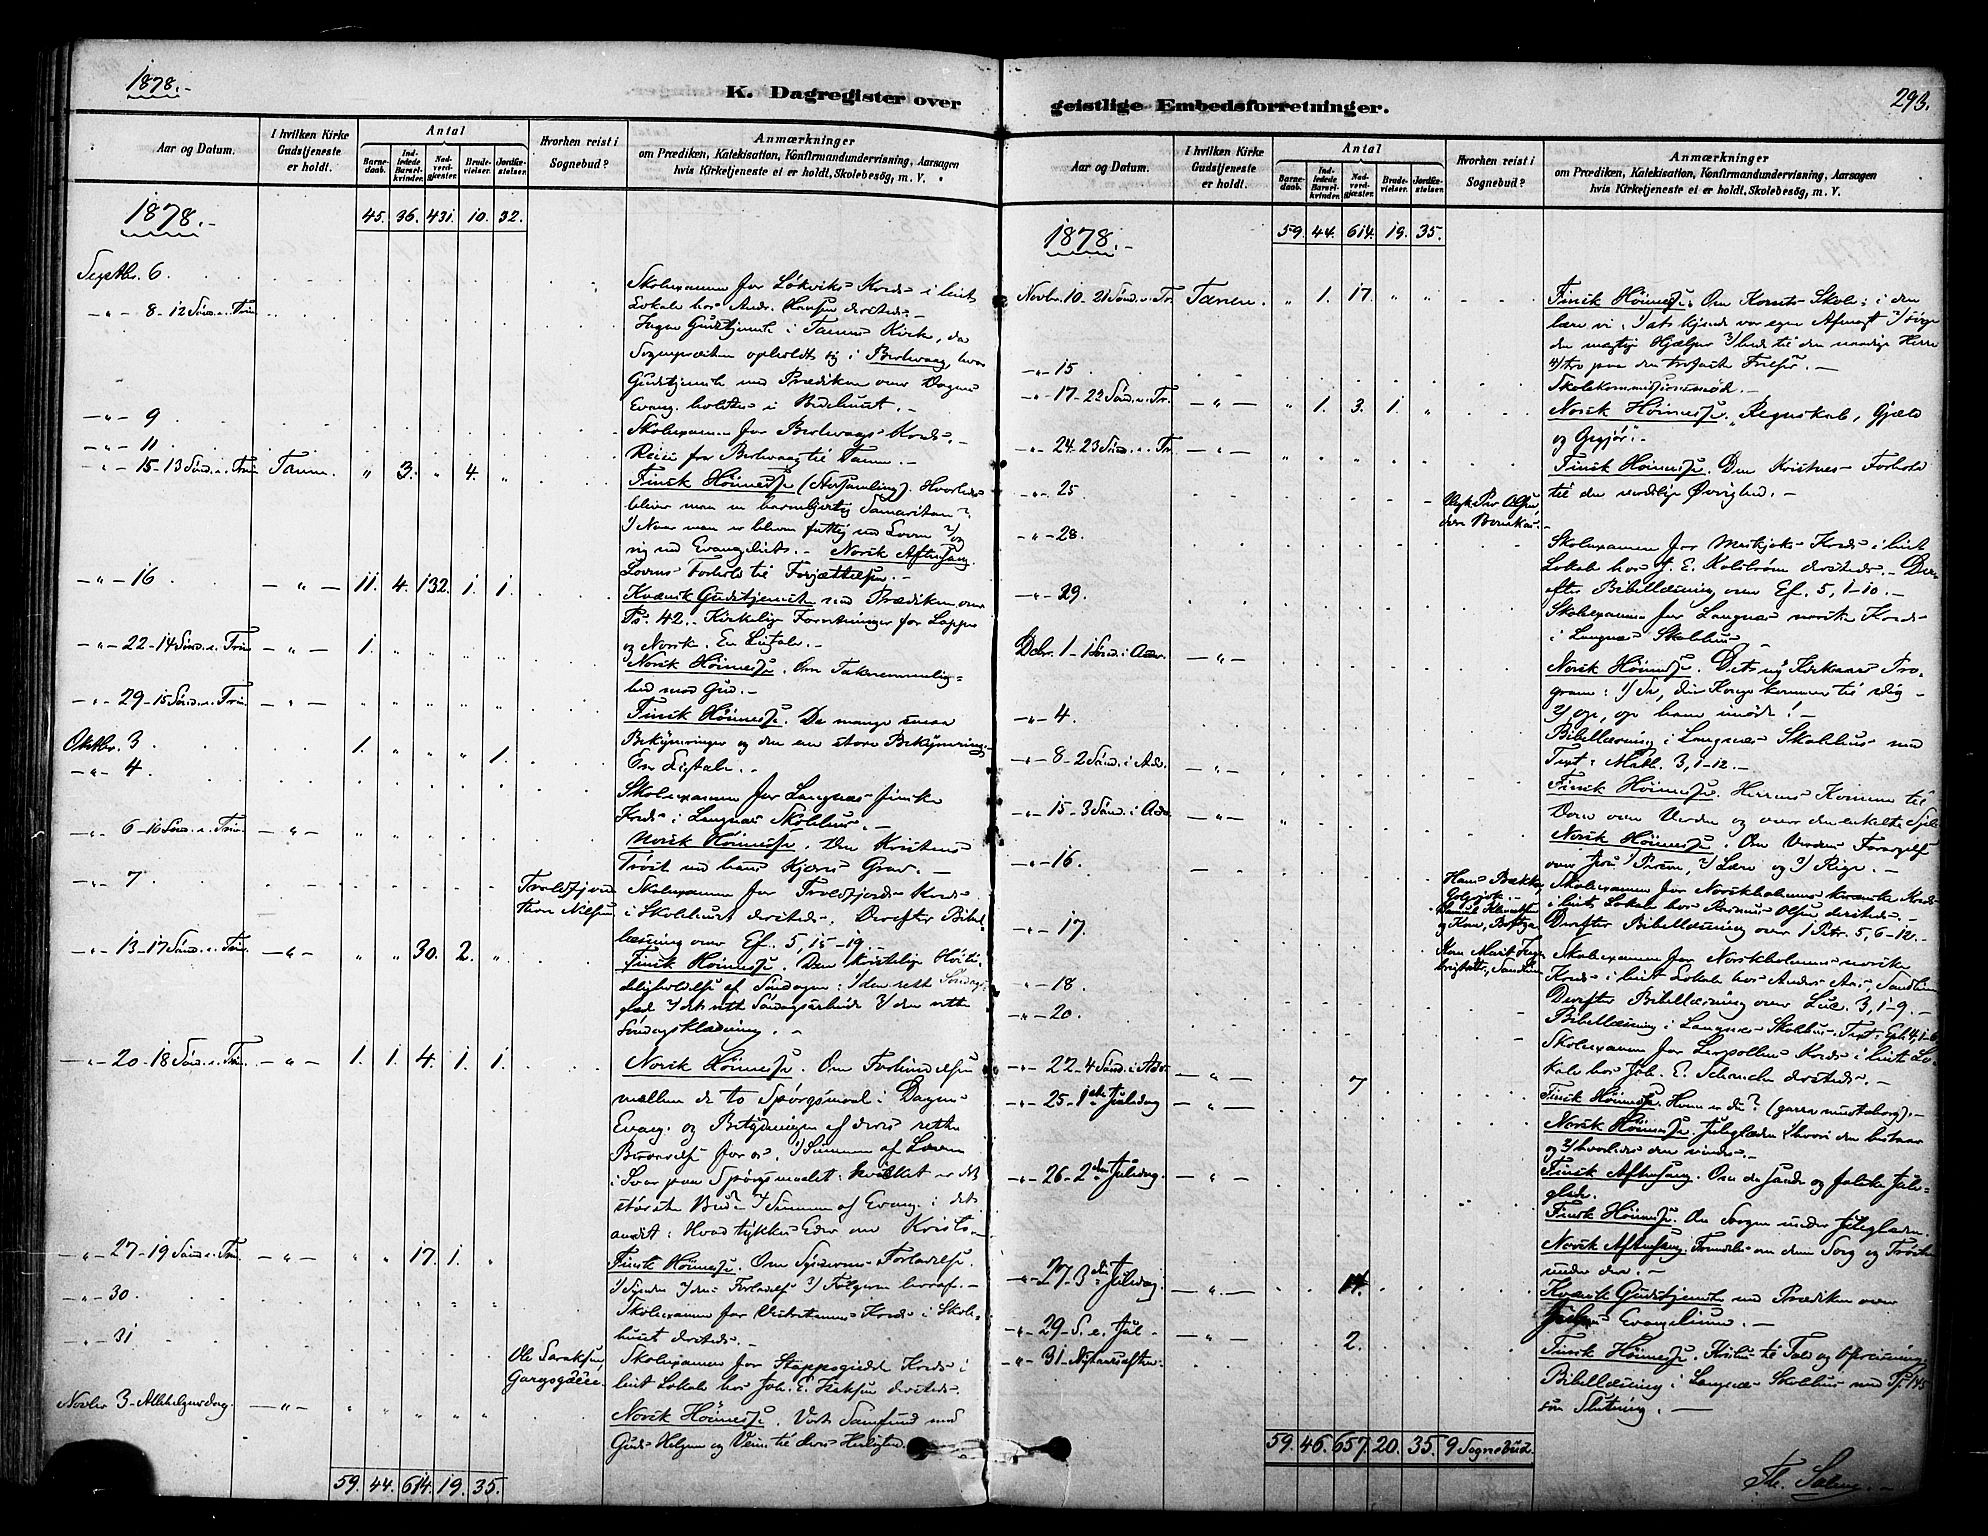 1878.-
K. Dagregister over
Aar og Datum.
I hvilken Kirke Gudstjeneste er holdt.
Antal
Barnedaab.
Indledede Barselkvinder.
Nadverdgjæster.
Brudevielser.
Jordfæstelser.
Hvorhen reist i Sognebud?
Anmærkninger
om Prædiken, Katekisation, Konfirmandundervisning, Aarsagen
hvis Kirketjeneste ei er holdt, Skolebesög, m. V.
1878.- 45. 36. 431. 10. 32.
Septbr. 6 Skolexamen for Løkviks Kreds i leiet
Lokale hos Andr. Hansen dersteds.-
-"- 8-12 Sønd. e. Trin. Ingen Gudstjeneste i Tanens Kirke, da
Sognepræsten opholdt sig i Berlevaag, hvor
Gudstjeneste med Prædiken over Dagens
Evang. holdtes i Bedehuset.-
-"- 9 Skolexamen for Berlevaags Kreds.-
-"- 11 Reise fra Berlevaag til Tanen.-
-"- 15-13 Sønd. e. Trin. Tanen. " 3. " 4. " Finsk Høimesse (Nersamling). Hvorledes
bliver man en barmhjertig Samaritan?
1/ Naar man er bleven fattig ved Loven 2/ og
rig ved Evangeliet.- Norsk Aftensang.
Lovens Forhold til Forjættelsen.-
-"- 16 -"- 11. 4. 132. 1. 1. Kvænsk Gudstjeneste med Prædiken over
Ps. 42.- Kirkelige Forretninger for Lapper
og Norske. En Ligtale.-
-"- 22-14 Sønd. e. Trin. -"- 1. " " " " Norsk Høimesse. Om Taknemmelig-
hed mod Gud.-
-"- 29-15 Sønd. e. Trin. -"- Finsk Høimesse. De mange smaa
Bekymringer og den ene store Bekymring.-
Oktbr. 3 1. " " " 1. En Ligtale.-
-"- 4 Skolexamen for Langnæs finske
Kreds i Langnæs Skolehus.-
-"- 6-16 Sønd. e. Trin. -"- " " " " Norsk Høimesse. Den Kristens
Trøst ved hans Kjæres Grav.-
-"- 7 Troldfjord Skolexamen for Troldfjords Kreds
Thor Nilsen i Skolehuset dersteds. Derefter Bibel-
læsning over Ef. 5, 15-19.-
-"- 13-17 Sønd. e. Trin. -"- " " 30. 2. " Finsk Høimesse. Den kristelige Høiti-
deligholdelse af Søndagen: 1/ den rette Søndags-
glæde 2/ det rette Søndagsarbeide 3/ den rette
Søndagsklædning.-
-"- 20-18 Sønd. e. Trin. -"- 1. 1. 4. 1. 1. Norsk Høimesse. Om Forbindelsen
mellem de to Spørgsmaal i Dagens
Evang. og Betydningen af deres rette
Besvarelse for os. 1/ Summen af Loven
i Svar paa Spørgsmaalet: hvilket er det
største Bud 2/ Summen af Evang. i det
andet: Hvad tykkes Eder om Kristo-
-"- 27-19 Sønd. e. Trin. -"- " " 17. 1. " Finsk Høimesse. Om Syndernes Forladelse
1/ Synden 2/ dens Forladelse 3/ Følgerne heraf.-
-"- 30 Skolexamen for Kreds i Skole-
huset dersteds.-
-"- 31 Ole Saraksen Skolexamen for Stappogiedde Kreds i
Gargogiedde. leiet Lokale hos Joh. E. dersteds.-
Novbr. 3-Allehelgensdag -"- " " " " Norsk Høimesse. Vort Samfund med
Guds Helgene og Veien til deres Herlighed
59. 44. 614. 19. 35.
geistlige Embedsforretninger.
293.
Aar og Datum.
I hvilken Kirke Gudstjeneste er holdt.
Antal
Barnedaab.
Indledede Barselkvinder.
Nadverdgjæster.
Brudevielser.
Jordfæstelser.
Hvorhen reist i Sognebud?
Anmærkninger
om Prædiken, Katekisation, Konfirmandundervisning, Aarsagen
hvis Kirketjeneste ei er holdt, Skolebesög, m. V.
1878.- 59. 44. 614. 19. 35.
Novbr. 10. 21 Sønd. e. Tr. Tanen. " 1. 17. " " Finsk Høimesse. Om Korsets Skole: i den
lære vi: 1/ at kjende vor egen Afmagt 2/ søge
den mægtige Hjælper 3/ bede til den naadige Herre
4/ tro paa den trofaste Frelser.-
-"- 15 Skolekommissionsmøde.-
-"- 17-22 Sønd. e. Tr. -"- " 1. 3. 1. " Norsk Høimesse. "Regnskab, Gjæld
og Opgjør".-
-"- 24-23 Sønd. e. Tr. -"- Finsk Høimesse. Den Kristnes Forhold
til den verdslige Øvrighed.-
-"- 25 Per Olsen
-"- 28 Skolexamen for Kreds i leiet
Lokale hos J. E. Kolstrøm dersteds.- Der-
efter Bibellæsning over Ef. 5, 1-10.-
-"- 29. Skolexamen for Langnæs norske Kreds
i Langnæs Skolehus
Decbr. 1-1 Sønd. i Adv. -"- Norsk Høimesse. Det nye Kirkeaars Pro-
gram: 1/ Se, din Konge kommer til dig-
2/ op, op ham imøde!-
-"- 4 Bibellæsning i Langnæs Skolehus med
Text: Math. 3, 1-12.-
-"- 8-2 Sønd. i Adv. -"- Finsk Høimesse. Herrens Komme til
Dom over Verden og over den enkelte Sjæl
-"- 15-3 Sønd. i Adv. -"- Norsk Høimesse. Om Verdens Forargelse
over Jesu 1/ Person, 2/ Lære og 3/ Rige.-
-"- 16. Hans Bække Skolexamen for Norskholmens kvænske Kreds
i leiet Lokale hos Rasmus Olsen dersteds.-
Derefter Bibellæsning over 1 Petr. 5, 6-12.-
-"- 17. Skolexamen for Norskholmens norske
Kreds i leiet Lokale hos Anders And. Sandlien
Derefter Bibellæsning over Luc. 3, 1-9.-
-"- 18 Bibellæsning i Langnæs Skolehus. Text Eph. 4, 1-6.
-"- 20. Skolexamen for Leirpollens Kreds i leiet Lo-
kale hos Joh. E. Schancke dersteds.-
-"- 22-4 Sønd. i Adv. -"- 7 Finsk Høimesse. Hvem er du?
-"- 25-1ste Juledag -"- Norsk Høimesse. Juleglæden 1/ hvori den bestaar
og 2/ hvorledes den vindes.-
Finsk Aftensang. Om den sande og falske Jule-
glæde.
-"- 26-2den Juledag -"- Finsk Høimesse. Om Sorgen under Juleglæden.
Norsk Aftensang. Fremdeles om denne Sorg og Trøsten
under den.-
-"- 27-3die Juledag -"- 14. Kvænsk Gudstjeneste med Prædiken over
Julens Evangelium.-
-"- 29-S. e. Jul- -"- 2. Finsk Høimesse. Kristus til Fald og Opreisning
-"- 31-Nytaarsaften- Bibellæsning i Langnæs Skolehus med Ps. 145
som Slutning.-
59. 46. 657. 20. 35. 9 Sognebud.